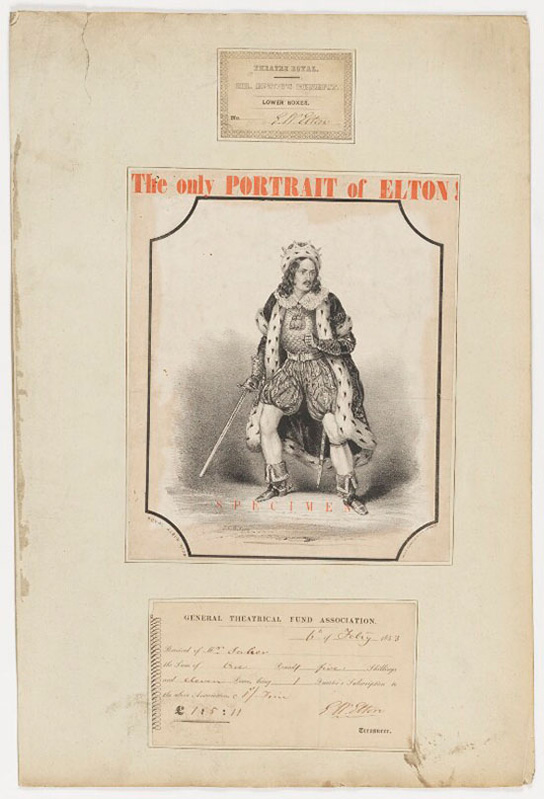 THEATRE ROYAL.
MR. BENEFIT.
LOWER BOXES.
No. E. W. Elton
The only PORTRAIT of ELTON!
SPECIMEN
GENERAL THEATRICAL FUND ASSOCIATION.
6th of Feby 1843
Received of Mr.
the Sum of One Pound five Shillings
and eleven Pence, being 1 Quarter's Subscription to
the above Association
£ 1 : 5 : 11 E. W. Elton
Treasurer.